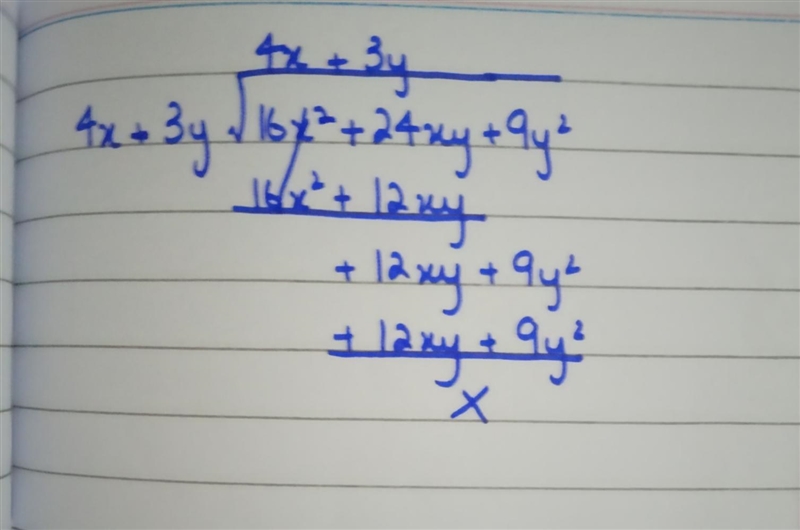 4x + 3y
4x + 3y √16x² + 24xy + 9y²
16x² + 12xy
+ 12xy + 9y²
+ 12xy + 9y²
X